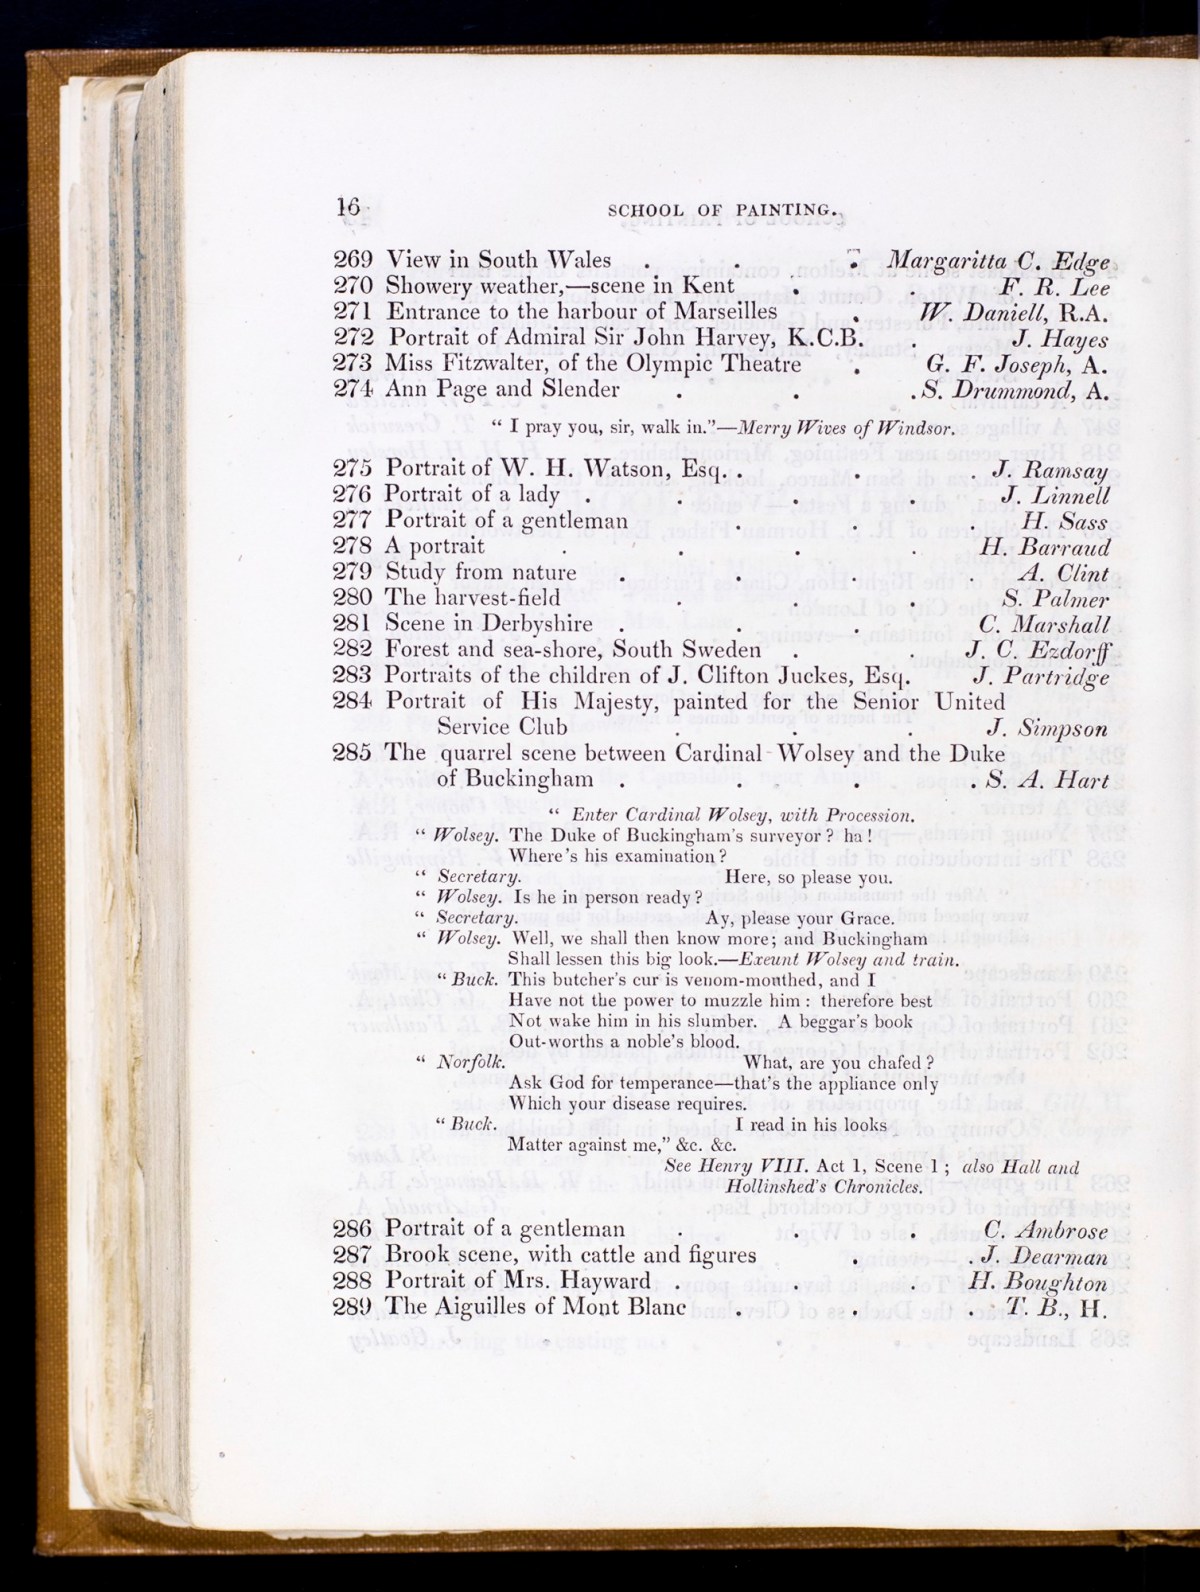 16 SCHOOL OF PAINTING.
269 View in South Wales . . . Margaritta C. Edge
270 Showery weather,—scene in Kent . . F. R. Lee
271 Entrance to the harbour of Marseilles . W. Daniell, R.A.
272 Portrait of Admiral Sir John Harvey, K.C.B. . J. Hayes
273 Miss Fitzwalter, of the Olympic Theatre . G. F. Joseph, A.
274 Ann Page and Slender . . . S. Drummond, A.
“ I pray you, sir, walk in.”—Merry Wives of Windsor.
275 Portrait of W. H. Watson, Esq. . . . J. Ramsay
276 Portrait of a lady . . . . J. Linnell
277 Portrait of a gentleman . . . H. Sass
278 A portrait . . . . H. Barraud
279 Study from nature . . . . A. Clint
280 The harvest-field . . . S. Palmer
281 Scene in Derbyshire . . . C. Marshall
282 Forest and sea-shore, South Sweden . . J. C. Ezdorff
283 Portraits of the children of J. Clifton Juckes, Esq. J. Partridge
284 Portrait of His Majesty, painted for the Senior United
Service Club . . . J. Simpson
285 The quarrel scene between Cardinal Wolsey and the Duke
of Buckingham . . . . S. A. Hart
“ Enter Cardinal Wolsey, with Procession.
“ Wolsey. The Duke of Buckingham's surveyor? ha!
Where's his examination?
“ Secretary. Here, so please you.
“ Wolsey. Is he in person ready?
“ Secretary. Ay, please your Grace.
“ Wolsey. Well, we shall then know more; and Buckingham
Shall lessen this big look.—Exeunt Wolsey and train.
“ Buck. This butcher's cur is venom-mouthed, and I
Have not the power to muzzle him: therefore best
Not wake him in his slumber. A beggar's book
Out-worths a noble's blood.
“ Norfolk. What, are you chafed?
Ask God for temperance—that's the appliance only
Which your disease requires.
“ Buck. I read in his looks
Matter against me,” &c. &c.
See Henry VIII. Act 1, Scene 1; also Hall and
Hollinshed's Chronicles.
286 Portrait of a gentleman . . . C. Ambrose
287 Brook scene, with cattle and figures . . J. Dearman
288 Portrait of Mrs. Hayward . . . H. Boughton
289 The Aiguilles of Mont Blanc . . . T. B., H.